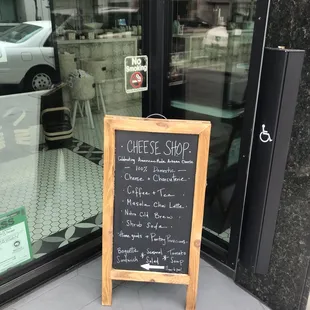 No
Smoking
CHEESE SHOP
Celebrating American Made Artisan Cheese
100% Domestic
Cheese + Charcuterie
Coffee + Tea
Masala Chai Latte
Nitro Cold Brew
Shrub Soda
Home goods + Pantry Provisions
Baguette Seasonal Tomato
Sandwich + Salad + Soup